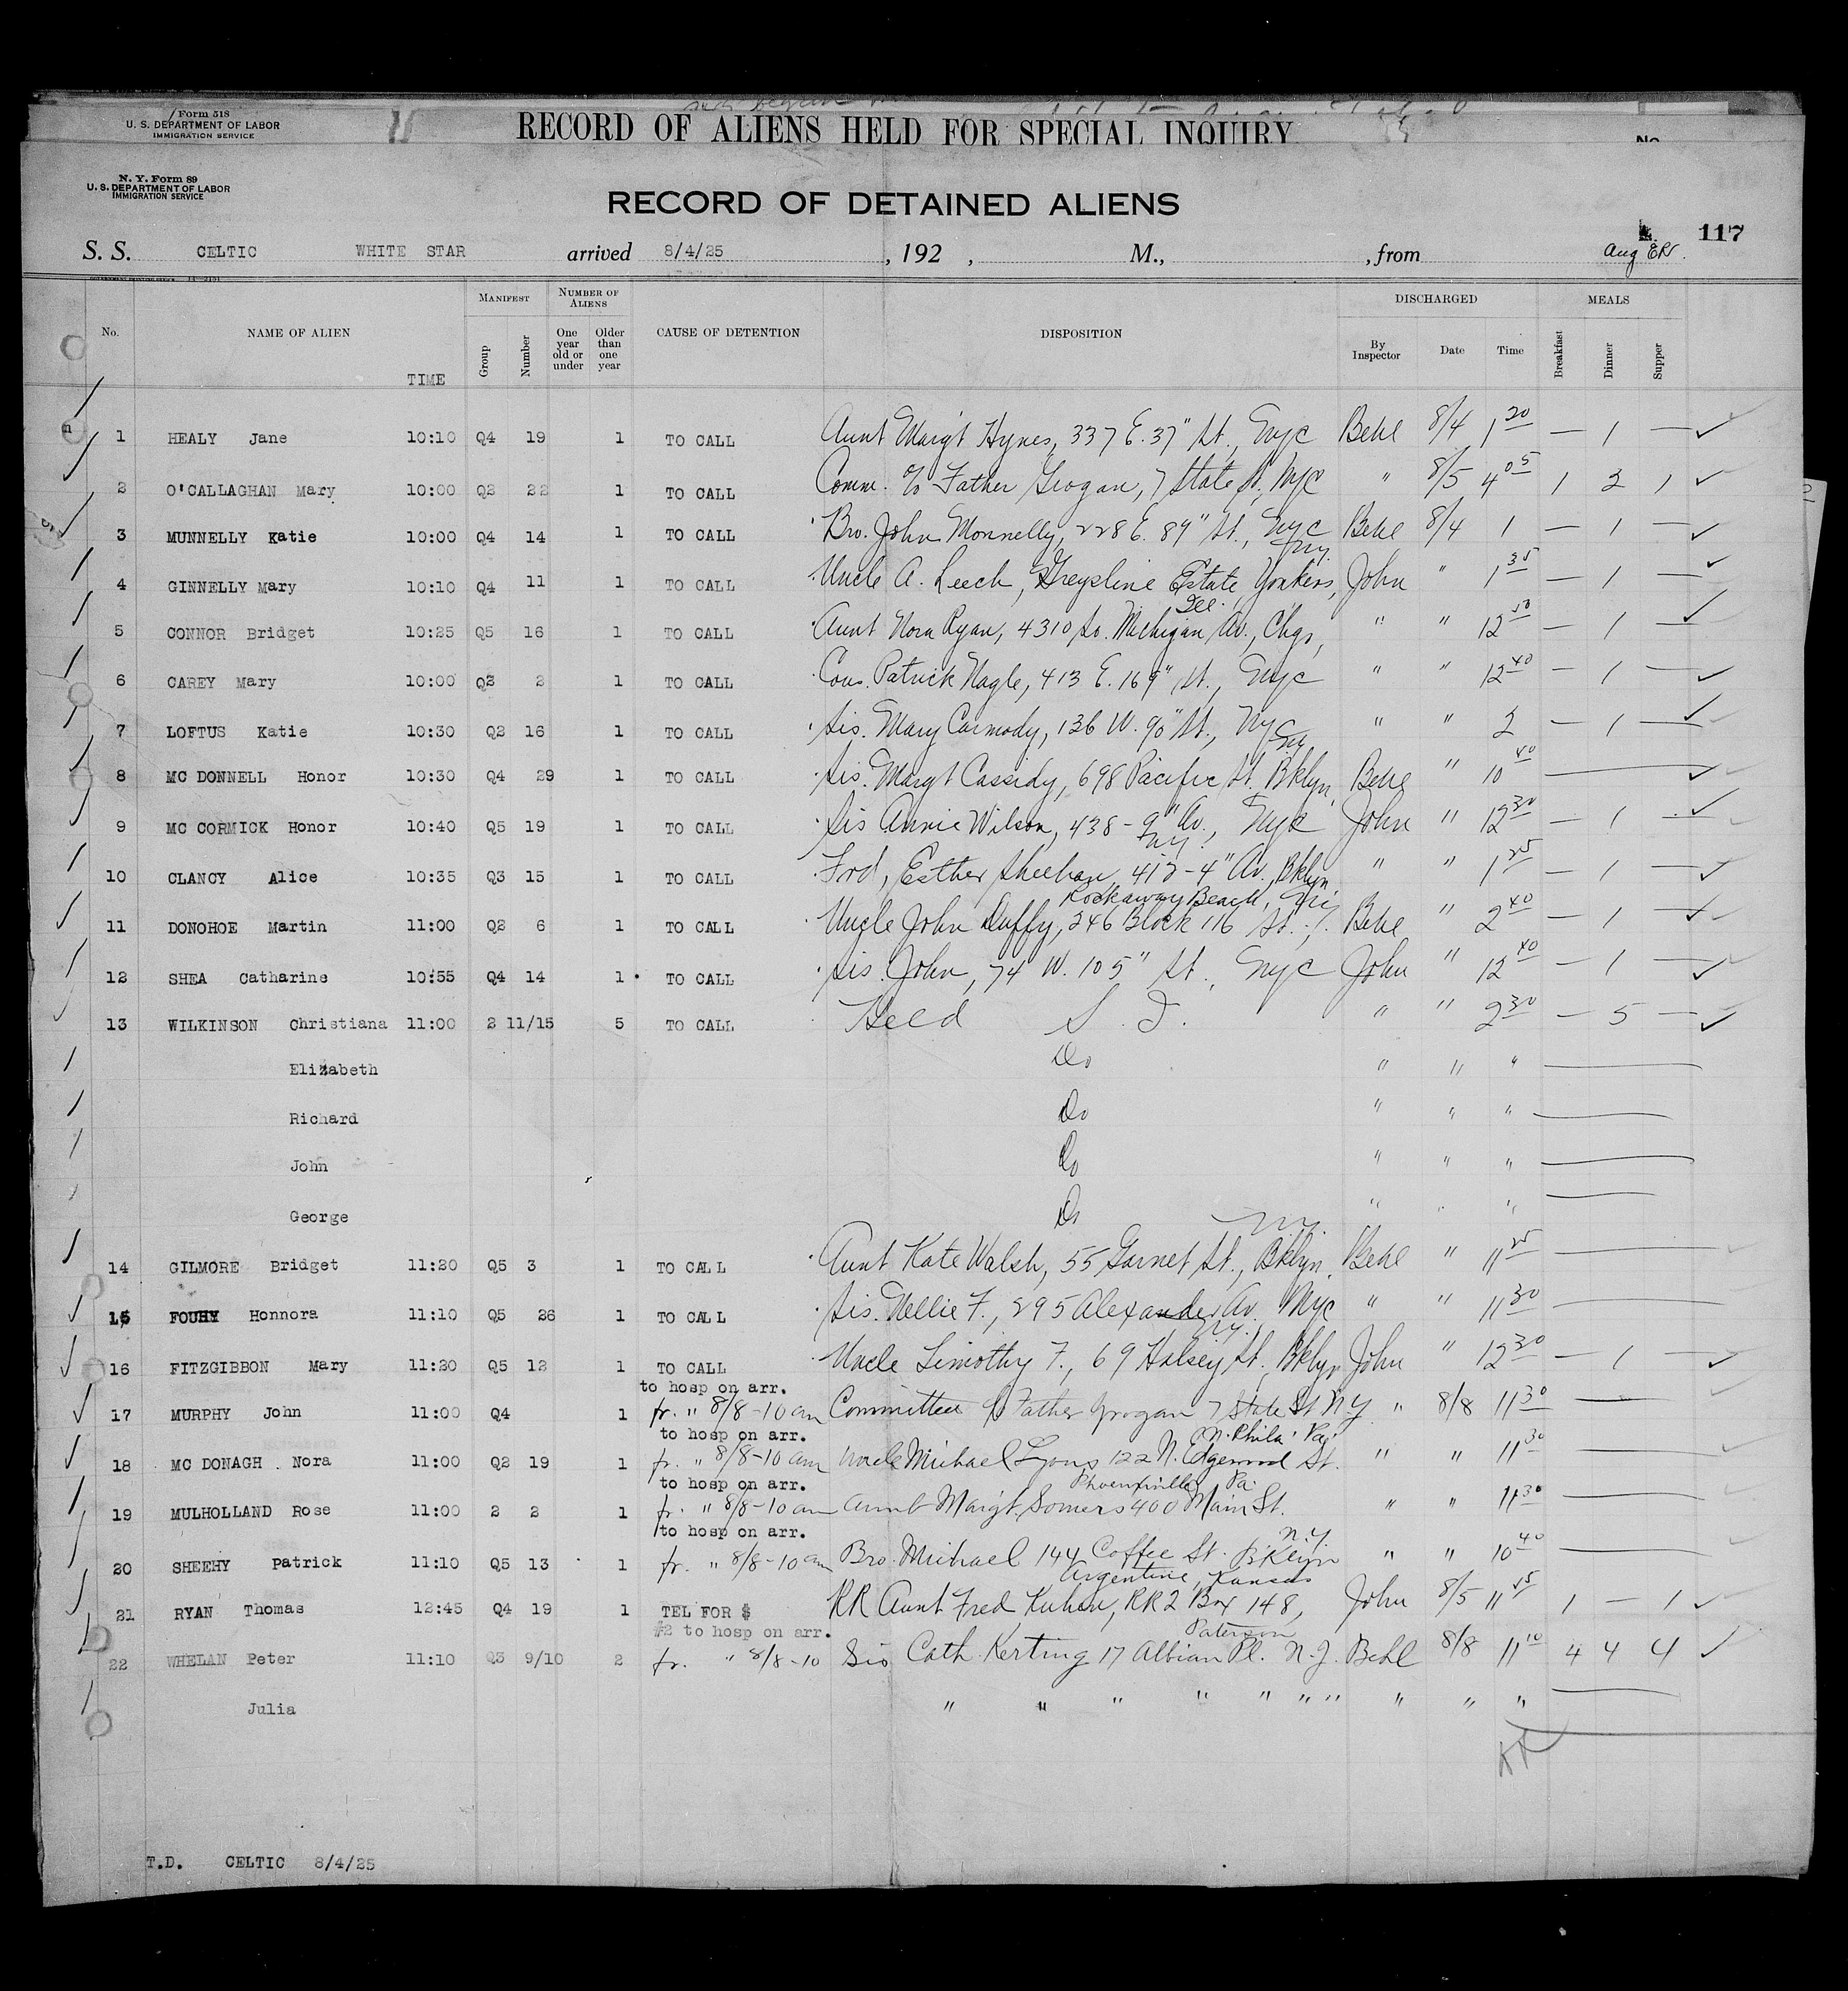 Form 518
U. S. DEPARTMENT OF LABOR
IMMIGRATION SERVICE
RECORD OF ALIENS HELD FOR SPECIAL INQUIRY
No
N. Y. Form 89
U. S. DEPARTMENT OF LABOR
IMMIGRATION SERVICE
RECORD OF DETAINED ALIENS
117
S. S. CELTIC WHITE STAR arrived 8/4/25, 192 , M., , from Aug
No. NAME OF ALIEN TIME MANIFEST Group Number NUMBER OF ALIENS One year old or under Older than one year CAUSE OF DETENTION DISPOSITION DISCHARGED By Inspector Date Time MEALS Breakfast Dinner Supper
1 HEALY Jane 10:10 Q4 19 1 TO CALL Aunt Margt Hynes, 337 E. 37" St., NYC Behl 8/4 1 20 — 1 — ✓
2 O'CALLAGHAN Mary 10:00 Q3 22 1 TO CALL Comm. c/o Father Grogan, 7 State St., NYC " 8/5 4 05 1 2 1 ✓
3 MUNNELLY Katie 10:00 Q4 14 1 TO CALL Bro. John Monnelly, 228 E. 89" St., NYC Behl 8/4 1 — 1 — ✓
4 GINNELLY Mary 10:10 Q4 11 1 TO CALL Uncle A. Leech, Greystine Estate, Yonkers, NY. John " 1 35 — 1 — ✓
5 CONNOR Bridget 10:25 Q5 16 1 TO CALL Aunt Nora Ryan, 4310 So. Michigan Av., Chgo, Ill. " " 12 50 — 1 — ✓
6 CAREY Mary 10:00 Q3 2 1 TO CALL Cous. Patrick Nagle, 413 E. 169" St., NYC " " 12 40 — 1 — ✓
7 LOFTUS Katie 10:30 Q2 16 1 TO CALL Sis. Mary Carmody, 136 W. 90" St., NYC " " 2 — 1 — ✓
8 MC DONNELL Honor 10:30 Q4 29 1 TO CALL Sis. Margt Cassidy, 698 Pacific St. Bklyn, NY Behl " 10 40 — ✓
9 MC CORMICK Honor 10:40 Q5 19 1 TO CALL Sis Annie Wilson, 438 - 9" Av., NYC John " 12 30 — 1 — ✓
10 CLANCY Alice 10:35 Q3 15 1 TO CALL Frd, Esther Sheehan, 412 - 4" Av., Bklyn NY. " " 1 25 — 1 — ✓
11 DONOHOE Martin 11:00 Q2 6 1 TO CALL Uncle John Duffy, 246 Block 116 St., Rockaway Beach, Behl " 2 40 — 1 — ✓
12 SHEA Catharine 10:55 Q4 14 1 TO CALL Sis. John, 74 W. 105" St., NYC John " 12 40 — 1 — ✓
13 WILKINSON Christiana 11:00 2 11/15 5 TO CALL Held S. I. " " 2 30 — 5 — ✓
Elizabeth Do " " "
Richard Do " " "
John Do " " "
George Do " " "
14 GILMORE Bridget 11:20 Q5 3 1 TO CALL Aunt Kate Walsh, 55 Garnet St., Bklyn, NY. Behl " 11 25
15 FOUHY Honnora 11:10 Q5 26 1 TO CALL Sis. Nellie F., 295 Alexander Av. NYC " " 11 30
16 FITZGIBBON Mary 11:20 Q5 12 1 TO CALL Uncle Timothy F., 69 Halsey St., Bklyn NY. John " 12 30 — 1 — ✓
17 MURPHY John 11:00 Q4 1 to hosp on arr. fr. " 8/8-10 am Committee c/o Father Grogan 7 State St NY " 8/8 11 30
18 MC DONAGH Nora 11:00 Q2 19 1 to hosp on arr. fr. " 8/8-10 am Uncle Michael Lyons 122 N. Edgewood St. Phila Pa. " " 11 30
19 MULHOLLAND Rose 11:00 2 2 1 to hosp on arr. fr. " 8/8-10 am Aunt Margt. Somers 400 Main St. Phoenixville Pa. " " 11 30
20 SHEEHY Patrick 11:10 Q5 13 1 to hosp on arr. fr. " 8/8-10 am Bro. Michael 144 Coffee St. B'klyn N.Y. " " 10 40
21 RYAN Thomas 12:45 Q4 19 1 TEL FOR $ RR Aunt Fred Kuhn, RR 2 Box 148, Argentine, Kansas John 8/5 11 15 1 — 1 ✓
22 WHELAN Peter 11:10 Q5 9/10 2 #2 to hosp on arr. fr. " 8/8-10 Sis Cath. Kerting 17 Albian Pl. Paterson N.J. Behl 8/8 11 10 4 4 4 ✓
Julia " " " " " " " " " "
T.D. CELTIC 8/4/25